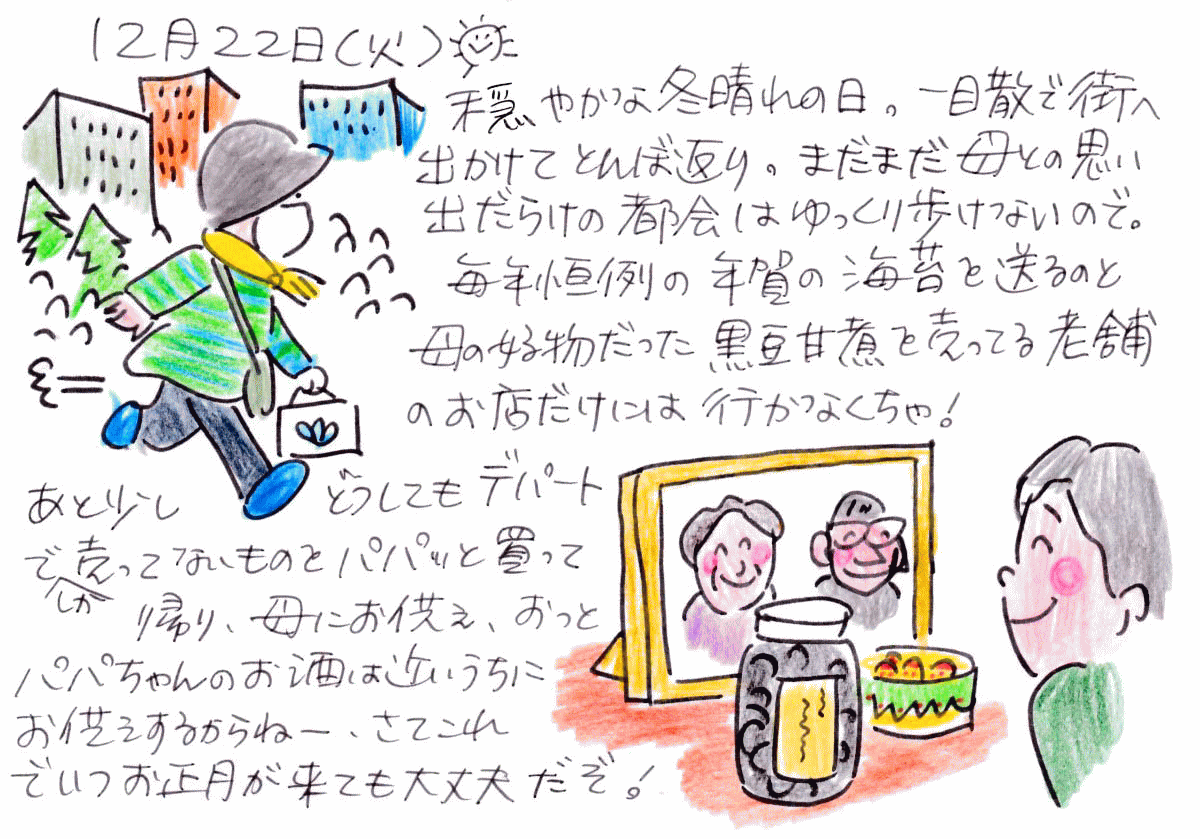 12月22日(火)
穏やかな冬晴れの日。一目散で街へ
出かけてとんぼ返り。まだまだ母との思い
出だらけの都会はゆっくり歩けないので。
毎年恒例の年賀の海苔を送るのと
母の好物だった黒豆甘煮を売ってる老舗
のお店だけには行かなくちゃ!
あと少し どうしてもデパート
でしか売ってないものとパパッと買って
帰り、母にお供え、おっと
パパちゃんのお酒は近いうちに
お供えするからねー、さてこれ
でいつお正月が来ても大丈夫だぞ!